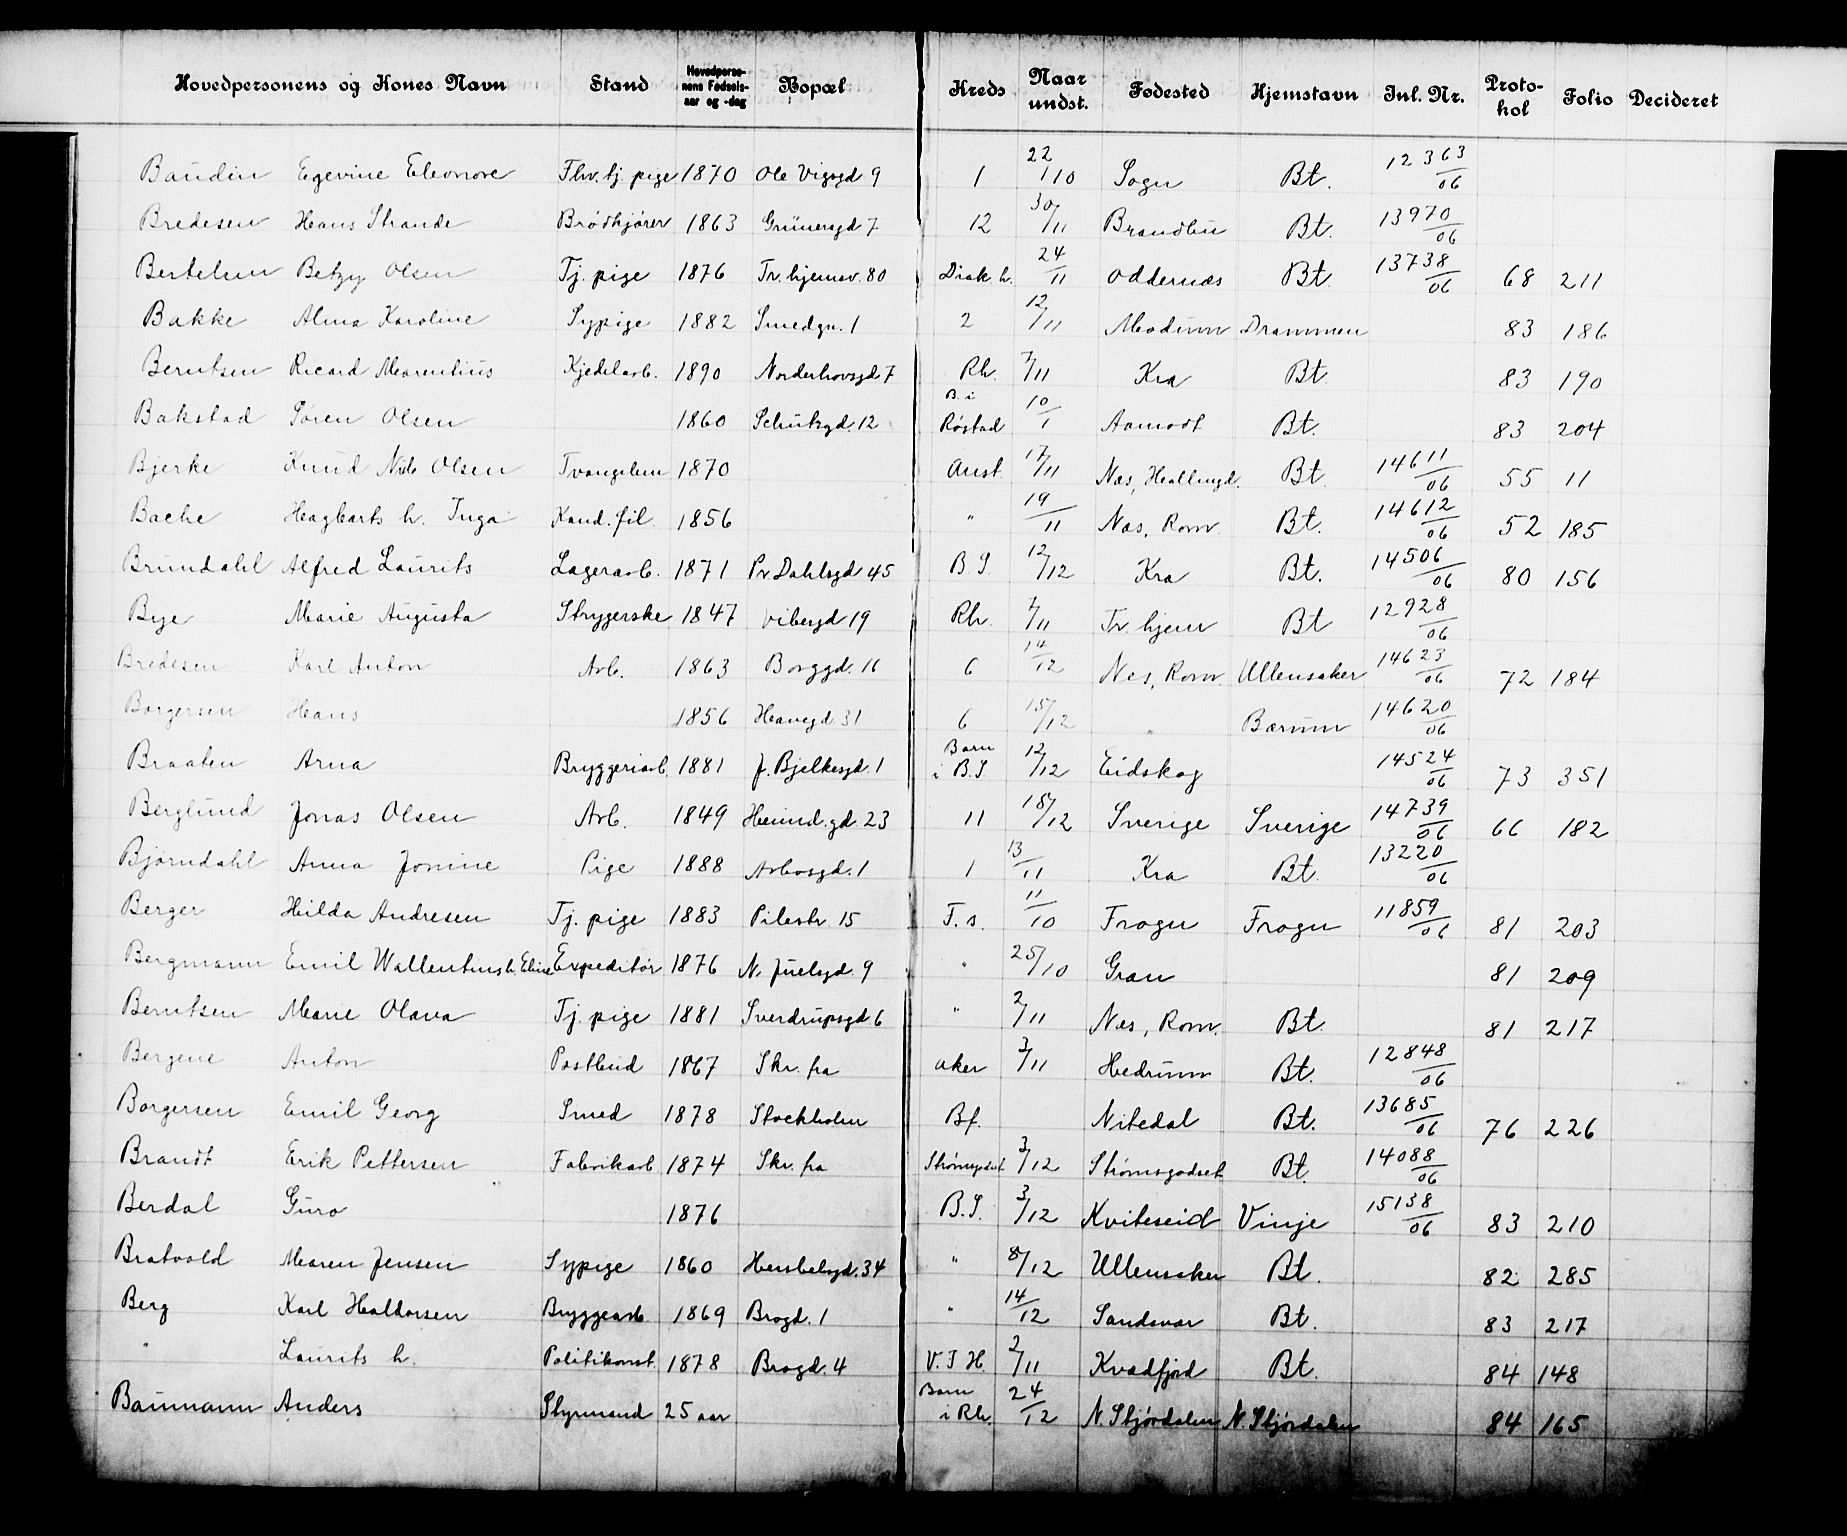 Hovedpersonens og Kones Navn Stand Hovedpersonens Fødselsaar og -dag Bopæl Kreds Naar undst. Fødested Hjemstavn Inl. Nr. Protokol Folio Decideret
Baudin Egevine Eleonore Fhv. tj. pige 1870 Ole Vigsgd 9 1 22/10 Sogn Bt. 12363/06
Bredesen Hans Strande Brødkjører 1863 Grünersgd 7 12 30/11 Brandbu Bt. 13970/06
Bertelsen Betzy Olsen Tj. pige 1876 Tr.hjemsv. 80 Diak. h. 24/11 Oddernæs Bt. 13738/06 68 211
Bakke Alma Karoline Sypige 1882 Smedgn. 1 2 12/11 Modum Drammen 83 186
Berntsen Ricard Marentius Kjedelarb. 1890 Norderhovsgd 7 Rh. 7/11 Kra Bt. 83 190
Bakstad Søren Olsen 1860 Schultzgd. 12 B. i Røstad 10/1 Aamodt Bt. 83 204
Bjerke Knud Nils Olsen Tvangslem 1870 Anst. 17/11 Næs, Hallingd. Bt. 14611/06 55 11
Bache Hagbarts h. Inga Kand. fil. 1856 " 19/11 Næs, Rom. Bt. 14612/06 52 185
Brundahl Alfred Laurits Lagerarb. 1871 Pr Dahlsgd 45 B. S. 12/12 Kra Bt. 14506/06 80 156
Bye Marie Augusta Strygerske 1847 Vibesgd 19 Rh. 7/11 Tr. hjem Bt 12928/06
Bredesen Karl Anton Arb. 1863 Borggd. 16 6 14/12 Nes, Rom. Ullensaker 14623/06 72 184
Borgersen Hans 1856 Havegd. 31 6 15/12 Bærum 14620/06
Braaten Arna Bryggeriarb. 1881 J. Bjelkesgd. 1 Barn i B. S 12/12 Eidskog 14524/06 73 351
Berglund Jonas Olsen Arb. 1849 Heimd.gd. 23 11 15/12 Sverige Sverige 14739/06 66 182
Bjørndahl Anna Jonine Pige 1888 Arbosgd. 1 1 13/11 Kra Bt. 13220/06
Berger Hilda Andresen Tj. pige 1883 Pilestr. 15 F. s. 11/10 Frogn Frogn 11859/06 81 203
Bergmann Emil Wallentins h. Eline Expeditør 1876 N. Juelsgd. 9 " 25/10 Gran 81 209
Berntsen Marie Olava Tj. pige 1881 Sverdrupsgd. 6 " 2/11 Næs, Rom. Bt. 81 217
Bergene Anton Postbud 1867 Skr. fra Aker 3/11 Hedrum Bt. 12848/06
Borgersen Emil Georg Smed 1878 Stockholm Bf. Nitedal Bt. 13685/06 76 226
Brandt Erik Pettersen Fabrikarb 1874 Skr. fra Strømsgodset 3/12 Strømsgodset Bt. 14088/06
Berdal Guro 1876 B.S. 3/12 Kviteseid Vinje 15138/06 83 210
Bratvold Maren Jensen Sypige 1860 Hersbelsgd. 34 " 8/12 Ullensaker Bt. 82 285
Berg Karl Haldorsen Bryggearb. 1869 Brogd. 1 " 14/12 Sandsvær Bt. 83 217
" Laurits h. Politikonst. 1878 Brogd. 4 V. S H. 2/11 Kvædfjord Bt. 84 148
Baumann Anders Styrmand 25 aar Barn i Rh. 24/12 N. Stjørdalen N. Stjørdalen 84 165